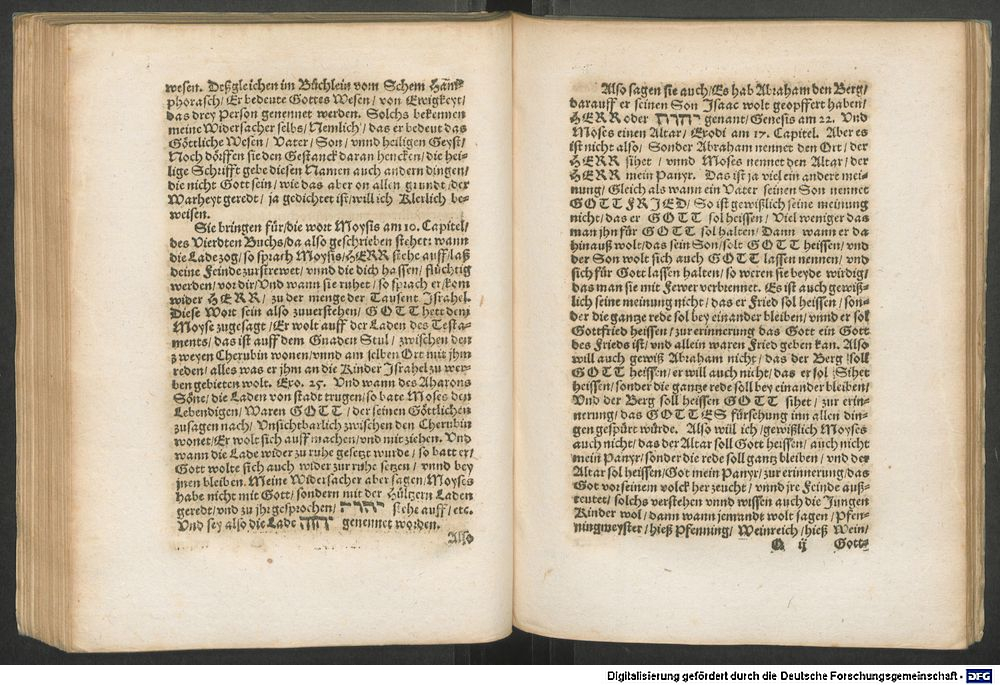 wesen. Deßgleichen im Büchlein vom Schem Ham-
phorasch/ Er bedeute Gottes Wesen/ von Ewigkeyt/
das drey Person genennet werden. Solchs bekennen
meine Widersacher selbs/ Nemlich/ das er bedeut das
Göttliche Wesen/ Vater/ Son/ vnnd heiligen Geyst/
Noch dörffen sie den Gestanck daran hencken/ die hei-
lige Schrifft gebe diesen Namen auch andern dingen/
die nicht Gott sein/ wie das aber on allen grundt/ der
Warheyt geredt/ ja gedichtet ist/ will ich Klerlich be-
weisen.
Sie bringen für/ die wort Moysis am 10. Capitel/
des Vierdten Buchs/ da also geschrieben stehet: wann
die Lade zog/ so sprach Moysis/ HERR stehe auff/ laß
deine Feinde zurstrewet/ vnnd die dich hassen/ flüchtig
werden/ vor dir/ Vnd wann sie ruhet/ so sprach er/ kom
wider HERR/ zu der menge der Tausent Israhel.
Diese Wort sein also zuuerstehen/ GOTT hett dem
Moyse zugesagt/ Er wolt auff der Laden des Testa-
ments/ das ist auff dem Gnaden Stul/ zwischen den
zweyen Cherubin wonen/ vnnd am selben Ort mit jhm
reden/ alles was er jhm an die Kinder Israhel zu wer-
ben gebieten wolt. Exo. 25. Vnd wann des Aharons
Söne/ die Laden von stadt trugen/ so bate Moses den
Lebendigen/ Waren GOTT/ der seinen Göttlichen
zusagen nach/ Vnsichtbarlich zwischen den Cherubin
wonet/ Er wolt sich auff machen/ vnd mit ziehen. Vnd
wann die Lade wider zu ruhe gesetzt wurde/ so batt er/
Gott wolte sich auch wider zur ruhe setzen/ vnnd bey
jnen bleiben. Meine Widersacher aber sagen/ Moyses
habe nicht mit Gott/ sondern mit der Hültzern Laden
geredt/ vnd zu jhr gesprochen/ יהוה stehe auff/ etc.
Vnd sey also die Lade יהוה genennet worden.
Also
Also sagen sie auch/ Es hab Abraham den Berg/
darauff er seinen Son Isaac wolt geopffert haben/
HERR oder יהוה genant/ Genesis am 22. Vnd
Moses einen Altar/ Exodi am 17. Capitel. Aber es
ist nicht also/ Sonder Abraham nennet den Ort/ der
HERR sihet/ vnnd Moses nennet den Altar/ der
HERR mein Panyr. Das ist ja viel ein andere mei-
nung/ Gleich als wann ein Vater seinen Son nennet
GOTTFRIED/ So ist gewißlich seine meinung
nicht/ das er GOTT sol heissen/ Viel weniger das
man jhn für GOTT sol halten/ Dann wann er da
hinauß wolt/ das sein Son/ solt GOTT heissen/ vnd
der Son wolt sich auch GOTT lassen nennen/ vnd
sich für Gott lassen halten/ so weren sie beyde wirdig/
das man sie mit Fewer verbrennet. Es ist auch gewiß-
lich seine meinung nicht/ das er Fried sol heissen/ son-
der die gantze rede sol bey einander bleiben/ vnnd er sol
Gottfried heissen/ zur erinnerung das Gott ein Gott
des Frieds ist/ vnd allein waren Fried geben kan. Also
will auch gewiß Abraham nicht/ das der Berg soll
GOTT heissen/ er will auch nicht/ das er sol Sihet
heissen/ sonder die gantze rede soll bey einander bleiben/
Vnd der Berg soll heissen GOTT sihet/ zur erin-
nerung/ das GOTTES fürsehung inn allen din-
gen gespürt würde. Also will ich/ gewißlich Moyses
auch nicht/ das der Altar soll Gott heissen/ auch nicht
mein Panyr/ sonder die rede soll gantz bleiben/ vnd der
Altar sol heissen/ Got mein Panyr/ zur erinnerung/ das
Got vor seinem volck her zeucht/ vnnd jre Feinde auß-
reutet/ solchs verstehen vnnd wissen auch die Jungen
Kinder wol/ dann wann jemandt wolt sagen/ Pfen-
ningmeyster/ hieß Pfenning/ Weinreich/ hieß Wein/
Q ij Gott-
Digitalisierung gefördert durch die Deutsche Forschungsgemeinschaft - DFG